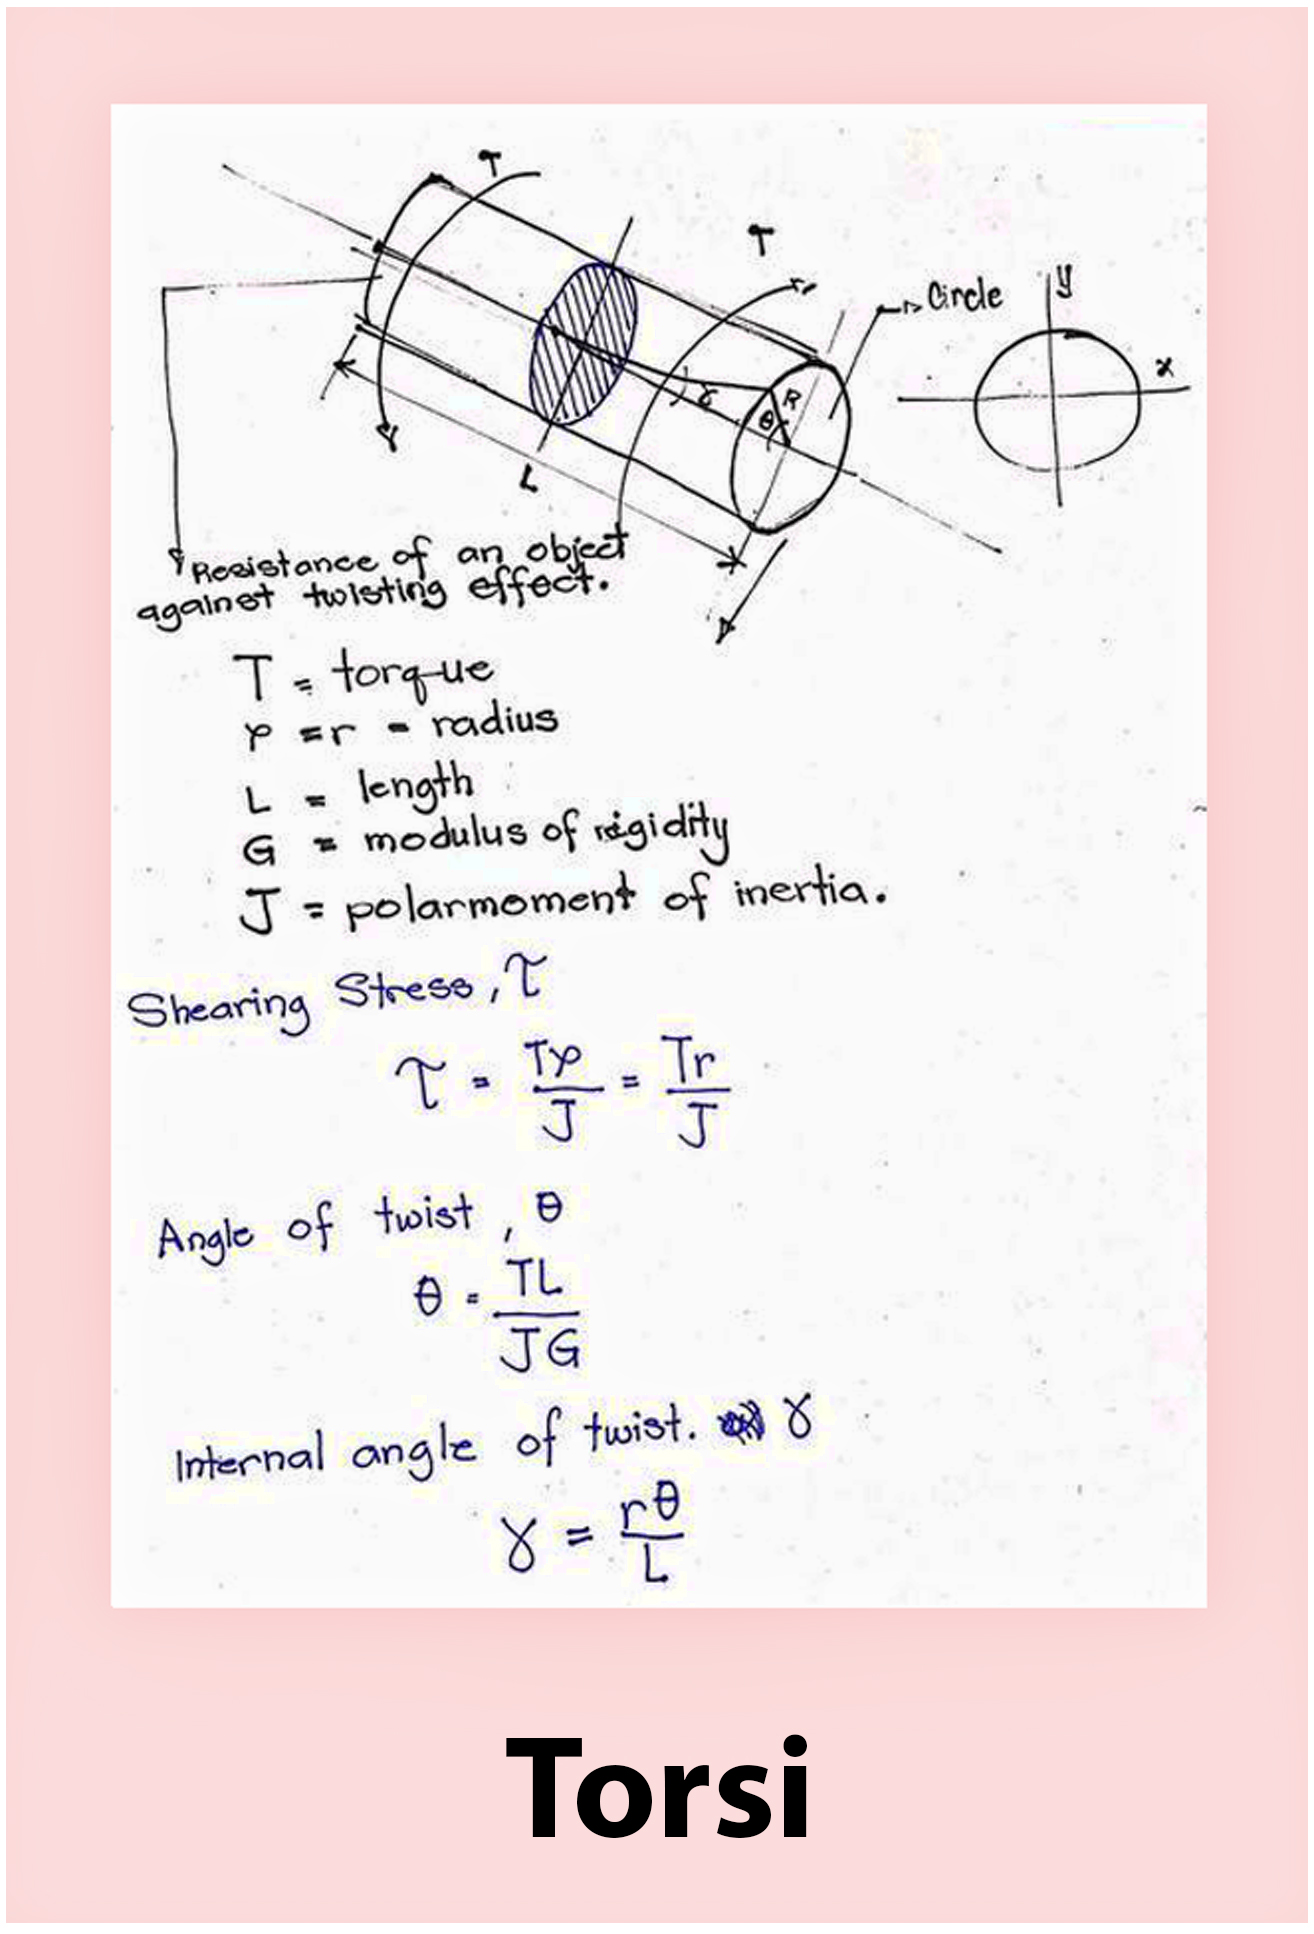 T
T
Circle
y
x
R
θ
γ
L
Resistance of an object
against twisting effect.
T = torque
ρ = r = radius
L = length
G = modulus of rigidity
J = polarmoment of inertia.
Shearing Stress, τ
τ = Tρ/J = Tr/J
Angle of twist, θ
θ = TL/JG
Internal angle of twist. γ
γ = rθ/L
Torsi